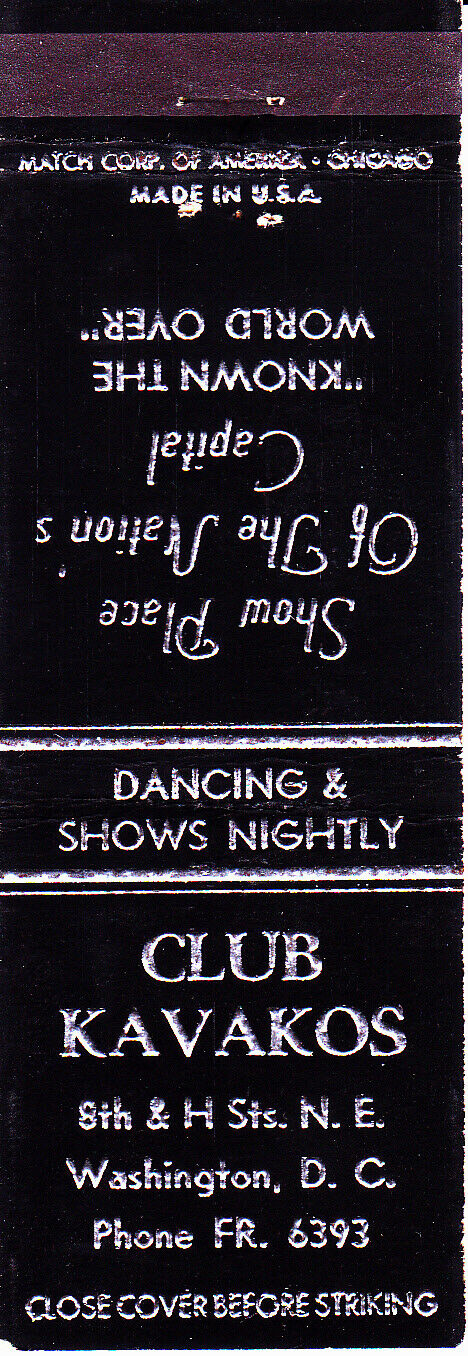 MATCH CORP. OF AMERICA • CHICAGO
MADE IN U.S.A.
Show Place
Of The Nation's
Capital
"KNOWN THE
WORLD OVER"
DANCING &
SHOWS NIGHTLY
CLUB
KAVAKOS
8th & H Sts. N. E.
Washington, D. C.
Phone FR. 6393
CLOSE COVER BEFORE STRIKING